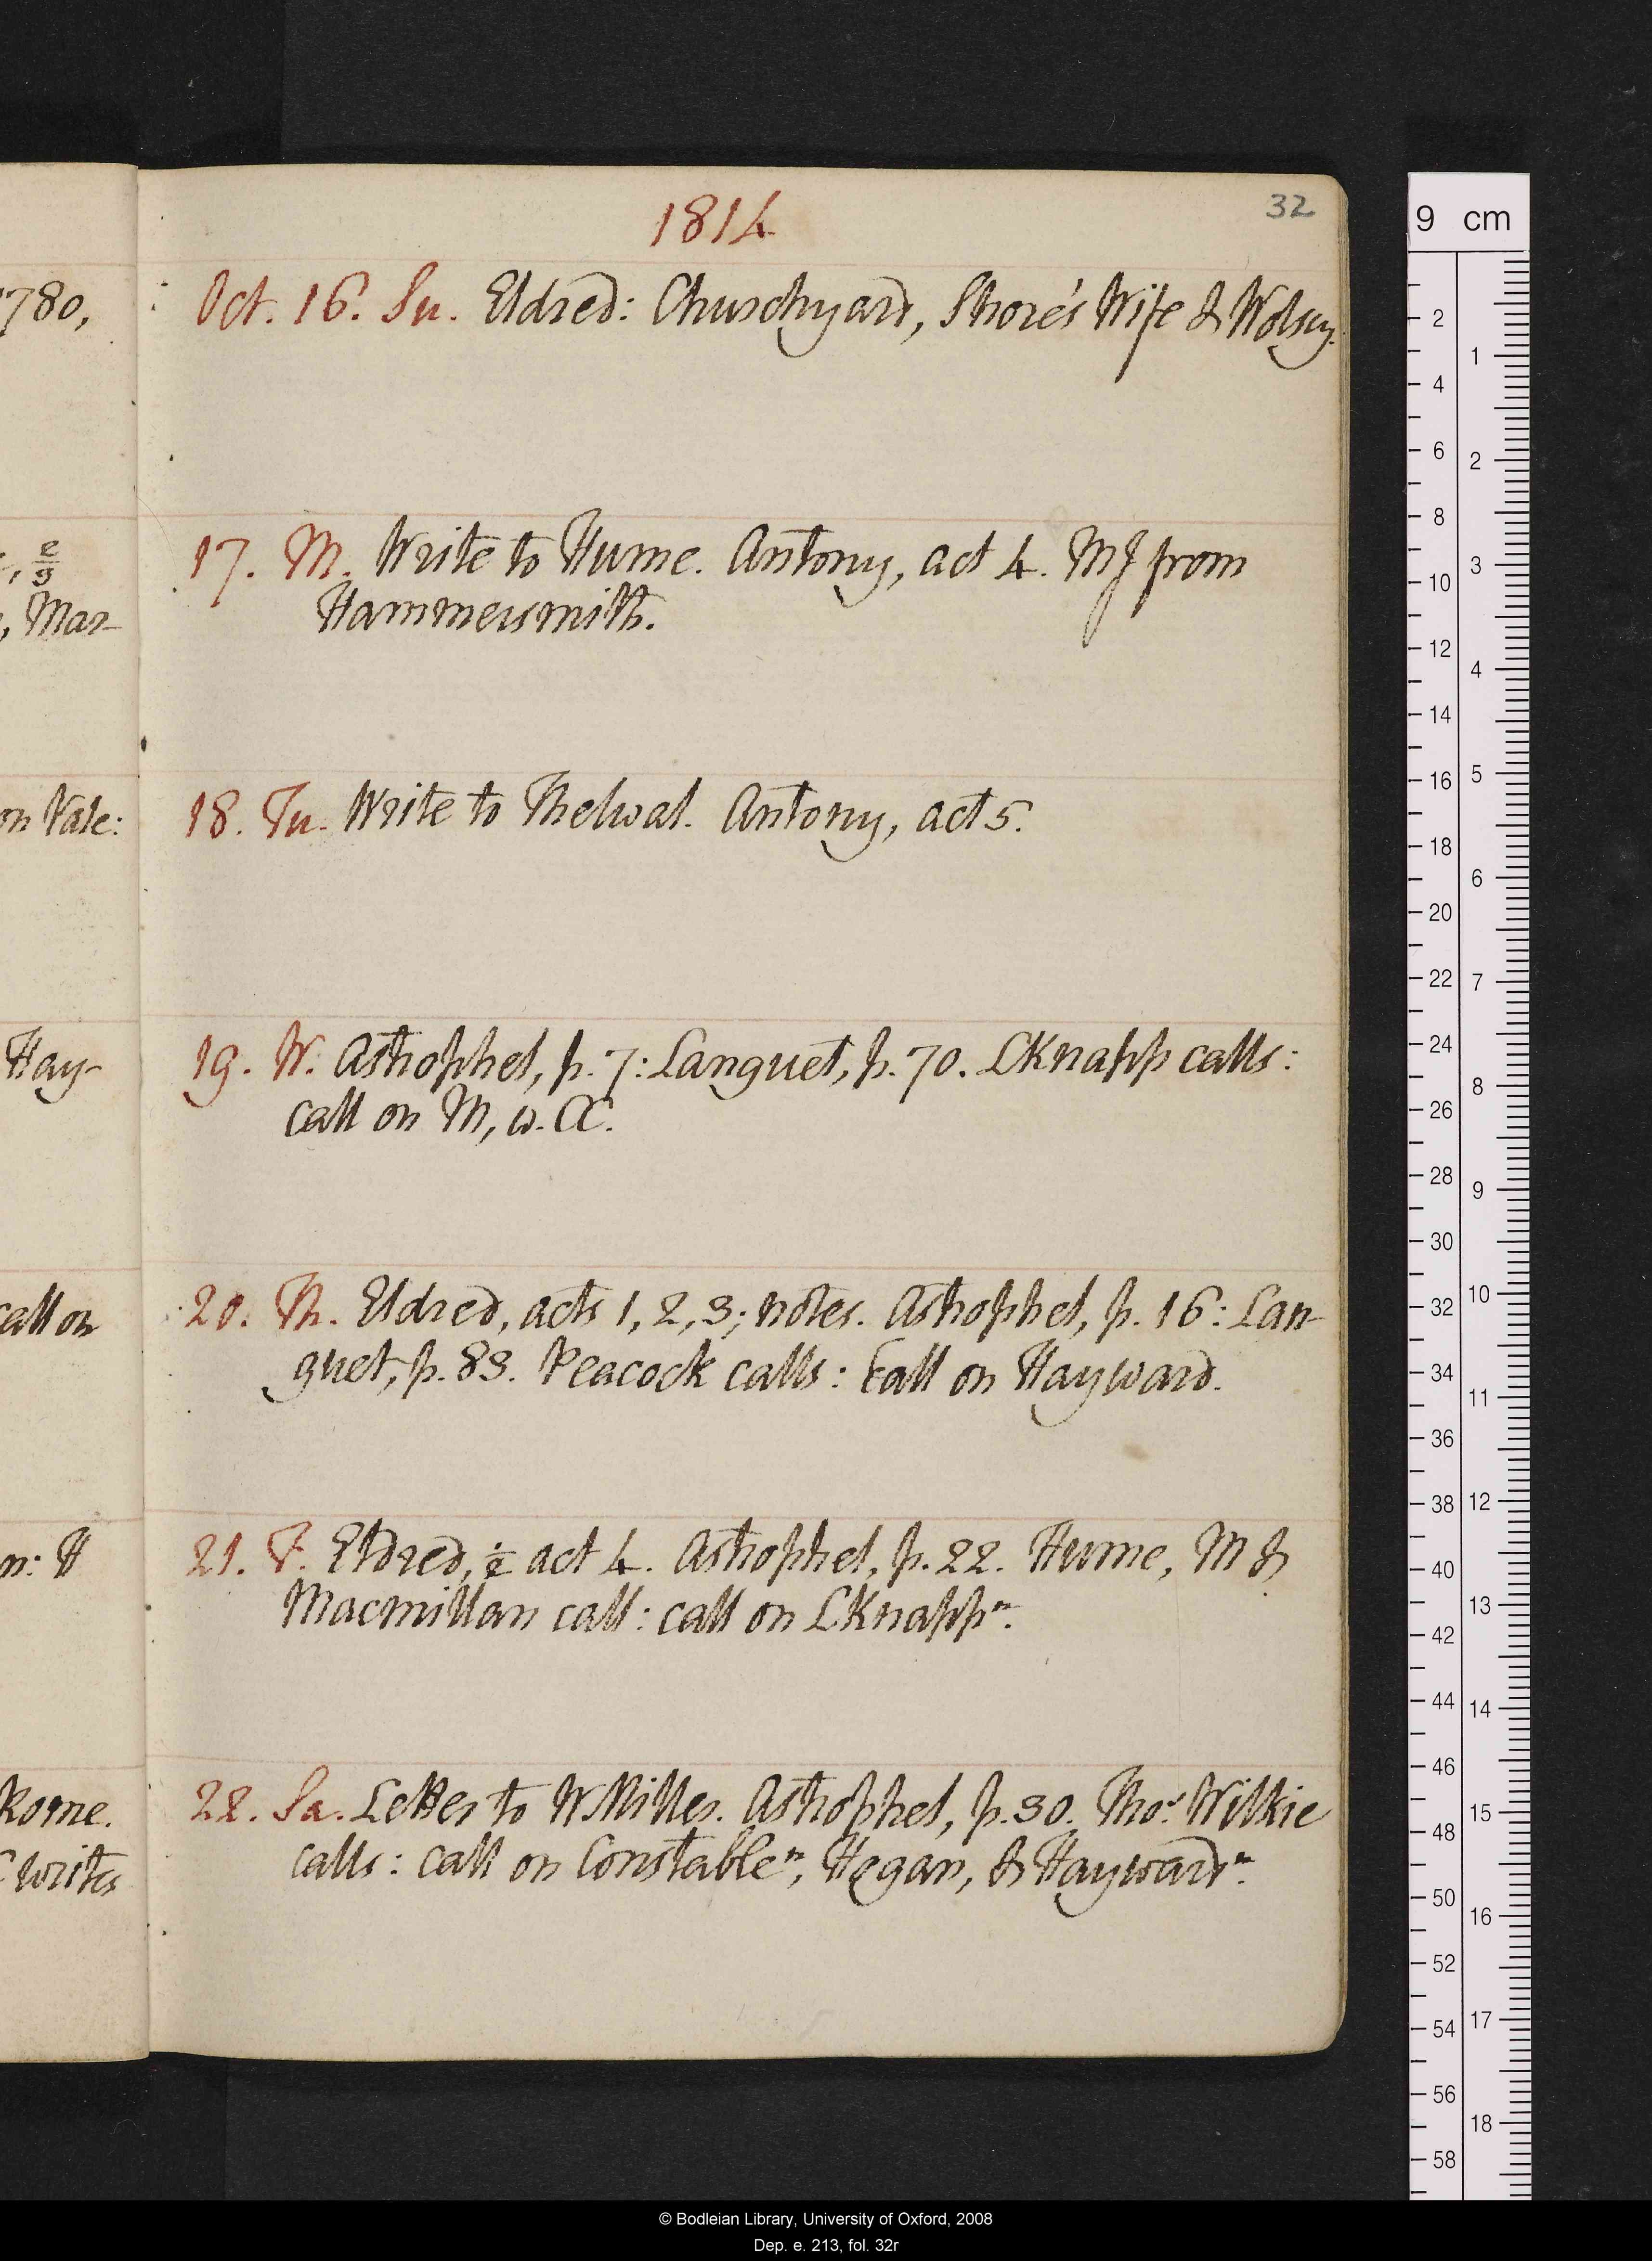 1814
32
Oct. 16. Su. Eldred: Churchyard, Shore's Wife & Wolsey.
17. M. Write to Hume. Antony, act 4. MJ from
Hammersmith.
18. Tu. Write to Thelwal. Antony, act 5.
19. W. Astrophel, p. 7: Languet, p. 70. LKnapp calls:
call on M, w. CC.
20. Th. Eldred, acts 1, 2, 3; notes. Astrophel, p. 16: Lan-
guet, p. 83. Peacock calls: call on Hayward.
21. F. Eldred, act 4. Astrophel, p. 22. Hume, M &
Macmillan call: call on LKnapp n.
22. Sa. Letter to WMilles. Astrophel, p. 30. Thos. Wilkie
calls: call on Constable n, Hogan, & Hayward n.
1780,
2/3
, Mar-
on Vale:
Hay-
call on
n: H
Rome.
writes
9 cm
2 4 6 8 10 12 14 16 18 20 22 24 26 28 30 32 34 36 38 40 42 44 46 48 50 52 54 56 58
1 2 3 4 5 6 7 8 9 10 11 12 13 14 15 16 17 18
© Bodleian Library, University of Oxford, 2008
Dep. e. 213, fol. 32r